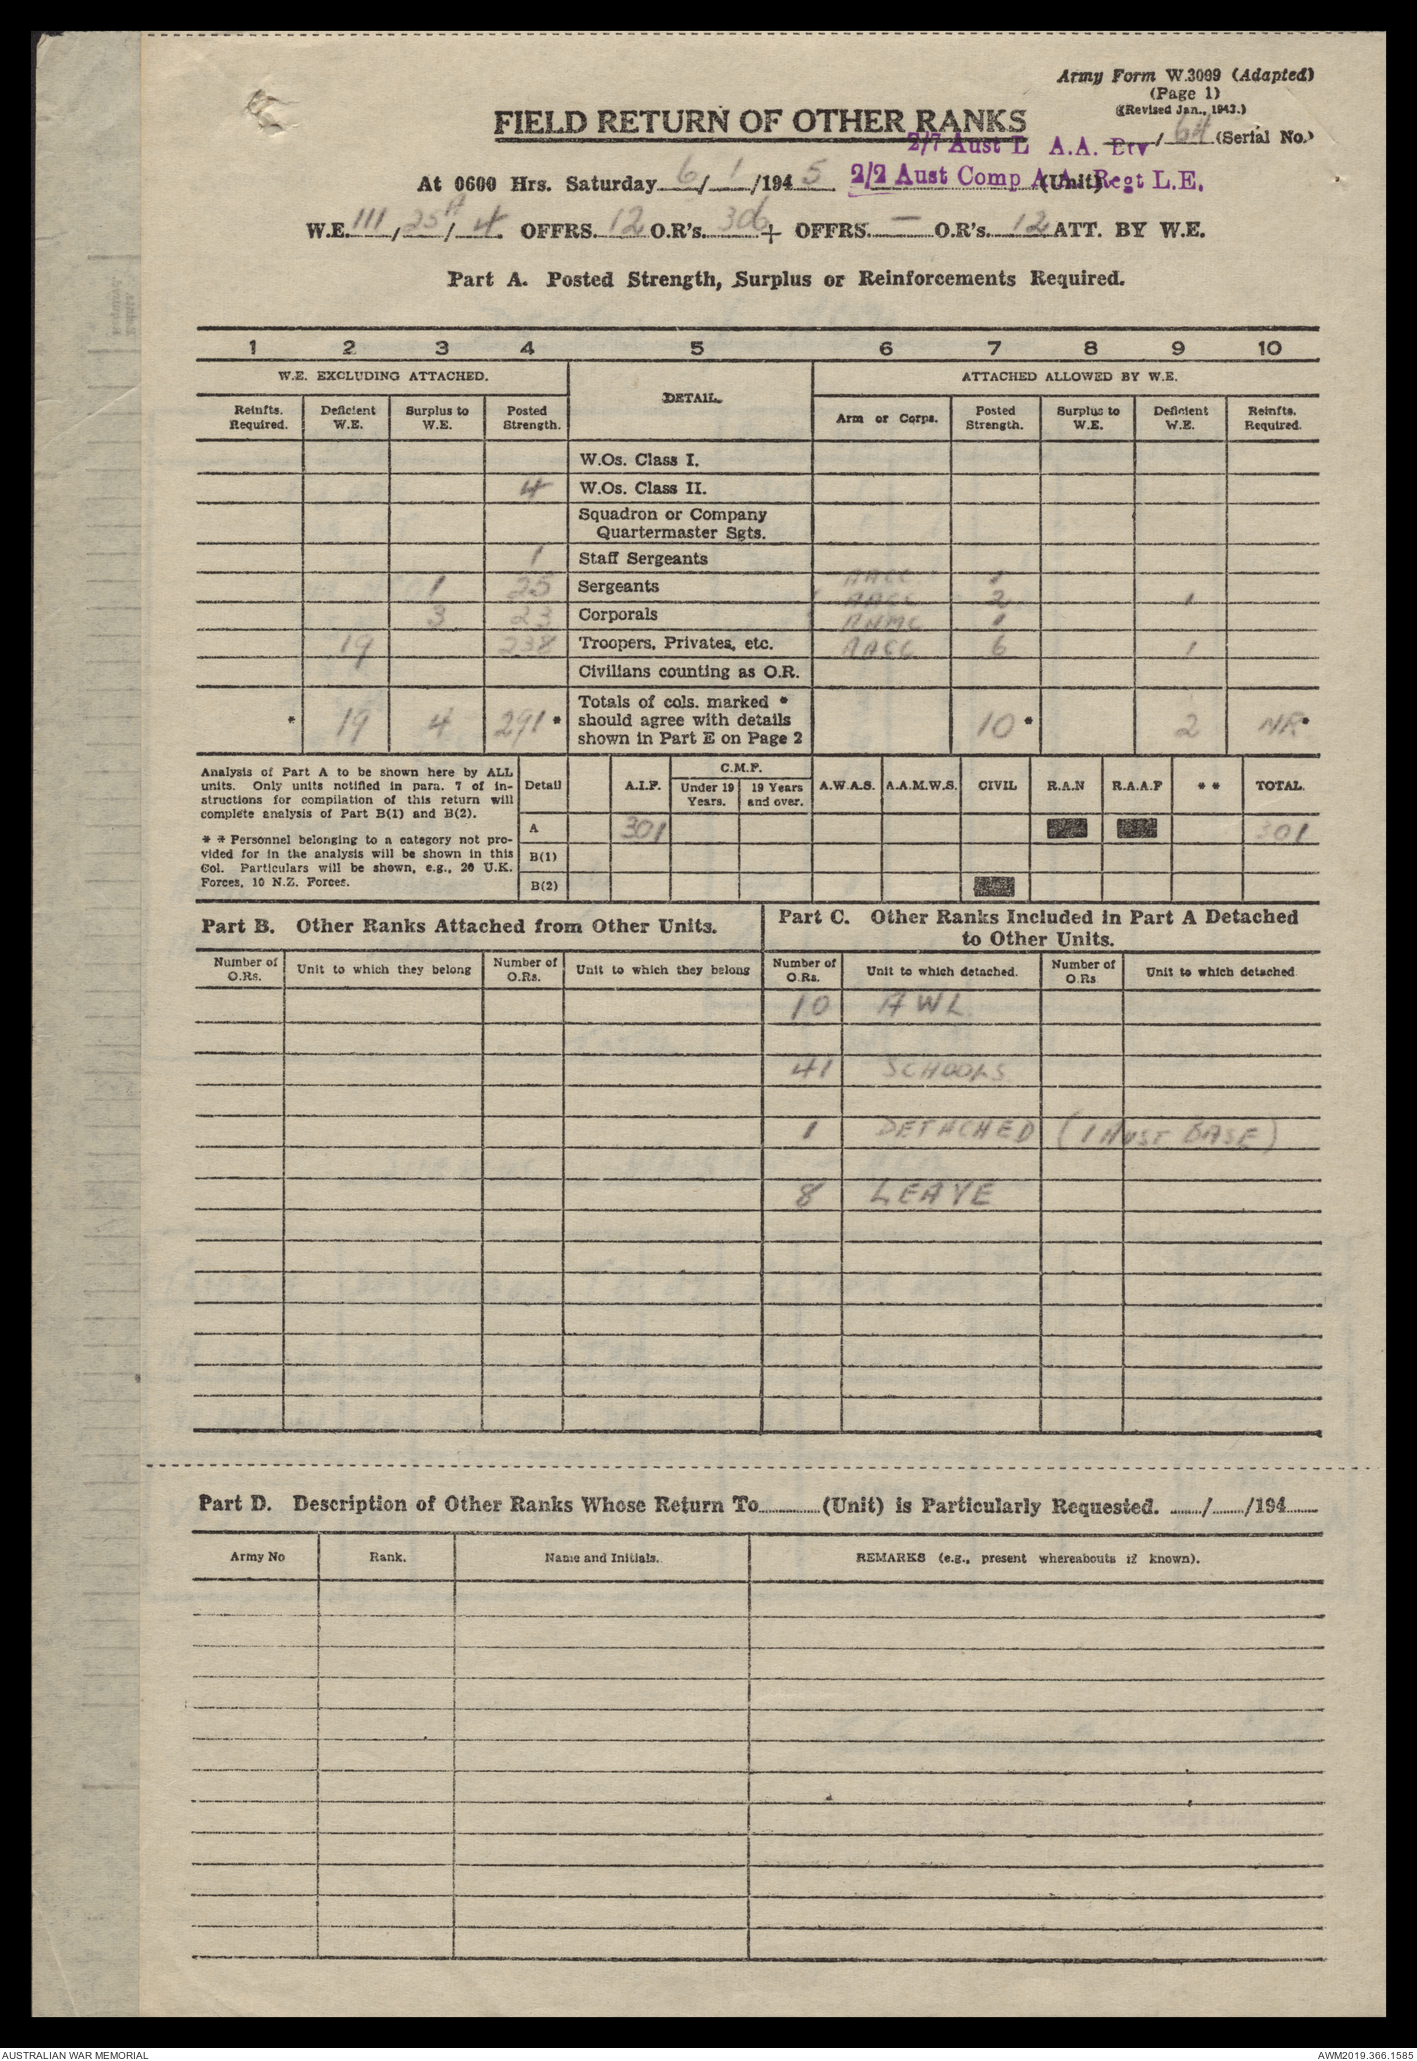 Army Form W.3009 (Adapted)
(Page 1)
(Revised Jan., 1943.)
FIELD RETURN OF OTHER RANKS
/ 64 (Serial No.)
2/7 Aust L A.A. Bty
At 0600 Hrs. Saturday 6/1/1945 2/2 Aust Comp A.A. Regt L.E. (Unit)
W.E. 111/25A/4 OFFRS. 12 O.R's. 306 + OFFRS. — O.R's. 12 ATT. BY W.E.
Part A. Posted Strength, Surplus or Reinforcements Required.
1 2 3 4 5 6 7 8 9 10
W.E. EXCLUDING ATTACHED. DETAIL. ATTACHED ALLOWED BY W.E.
Reinfts. Required. Deficient W.E. Surplus to W.E. Posted Strength. Arm or Corps. Posted Strength. Surplus to W.E. Deficient W.E. Reinfts. Required.
W.Os. Class I.
4 W.Os. Class II.
Squadron or Company
Quartermaster Sgts.
1 Staff Sergeants
1 25 Sergeants AACC 1
AACC 2 1
3 23 Corporals 1
19 238 Troopers, Privates, etc. AACC 6 1
Civilians counting as O.R.
* 19 4 291 * Totals of cols. marked * should agree with details shown in Part E on Page 2 10 * 2 *
Analysis of Part A to be shown here by ALL
units. Only units notified in para. 7 of in-
structions for compilation of this return will
complete analysis of Part B(1) and B(2).
* * Personnel belonging to a category not pro-
vided for in the analysis will be shown in this
Col. Particulars will be shown, e.g., 20 U.K.
Forces, 10 N.Z. Forces.
Detail A.I.F. C.M.F. Under 19 Years. 19 Years and over. A.W.A.S. A.A.M.W.S. CIVIL R.A.N R.A.A.F * * TOTAL.
A 301 301
B(1)
B(2)
Part B. Other Ranks Attached from Other Units.
Part C. Other Ranks Included in Part A Detached
to Other Units.
Number of O.Rs. Unit to which they belong Number of O.Rs. Unit to which they belong Number of O.Rs. Unit to which detached. Number of O.Rs Unit to which detached
10 AWL
41 SCHOOLS
1 DETACHED (1 AUST BASE)
8 LEAVE
Part D. Description of Other Ranks Whose Return To (Unit) is Particularly Requested. / /194
Army No Rank. Name and Initials. REMARKS (e.g., present whereabouts if known).
AUSTRALIAN WAR MEMORIAL
AWM2019.366.1585